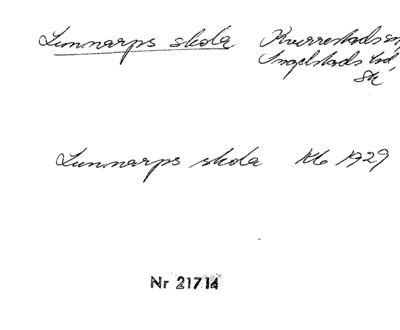 Lunnarps skola Kverrestads sn,
Ingelstads hd,
Sk
Lunnarps skola Kb 1929
Nr 21714